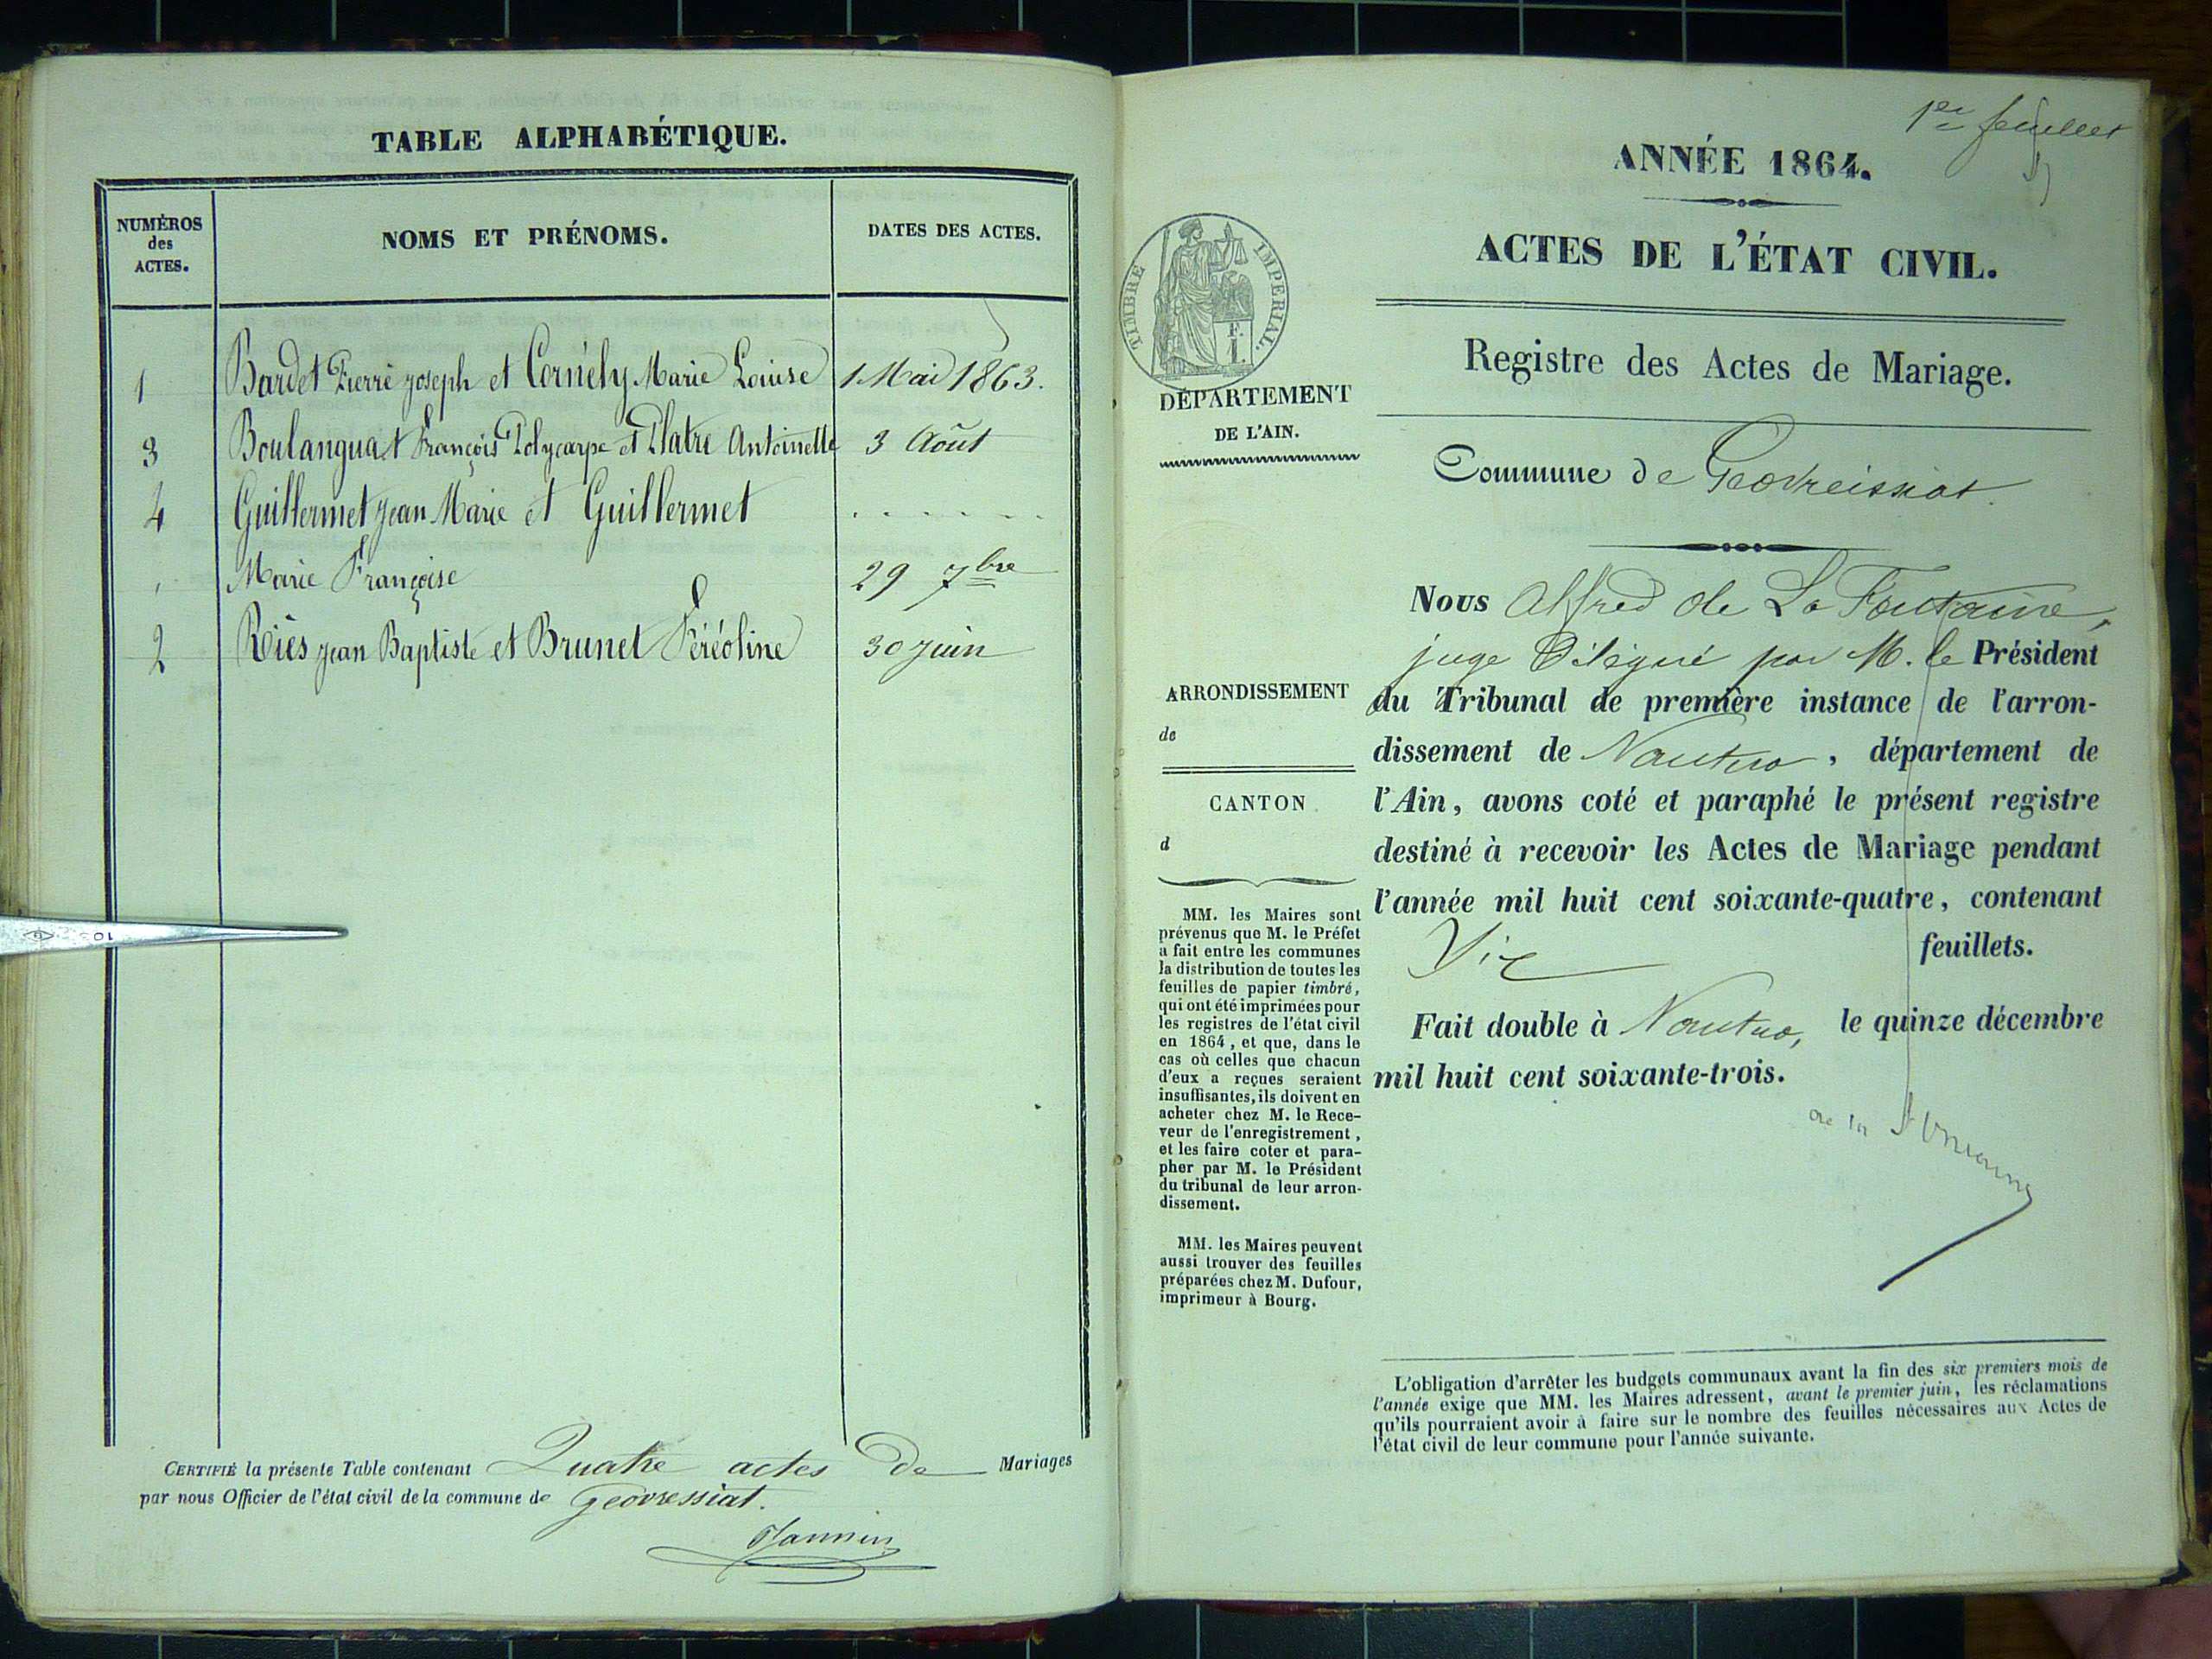 TABLE ALPHABÉTIQUE.
NUMÉROS
des
ACTES.
NOMS ET PRÉNOMS.
DATES DES ACTES.
1 Bardet Pierre joseph et Cornély Marie Louise 1 Mai 1863.
3 Boulanguat François Polycarpe et Platre Antoinette 3 Août
4 Guillermet jean Marie et Guillermet . . . . . .
Marie Françoise 29 7bre
2 Roiës jean Baptiste et Brunet Féréoline 30 juin
CERTIFIÉ la présente Table contenant Quatre actes De Mariages
par nous Officier de l'état civil de la commune de Géovressiat.
Jannin
1er feuillet
ANNÉE 1864.
ACTES DE L'ÉTAT CIVIL.
TIMBRE IMPÉRIAL.
DÉPARTEMENT
DE L'AIN.
Registre des Actes de Mariage.
Commune de Géovreissiat.
ARRONDISSEMENT
de
CANTON
d
MM. les Maires sont
prévenus que M. le Préfet
a fait entre les communes
la distribution de toutes les
feuilles de papier timbré,
qui ont été imprimées pour
les registres de l'état civil
en 1864, et que, dans le
cas où celles que chacun
d'eux a reçues seraient
insuffisantes, ils doivent en
acheter chez M. le Rece-
veur de l'enregistrement,
et les faire coter et para-
pher par M. le Président
du tribunal de leur arron-
dissement.
MM. les Maires peuvent
aussi trouver des feuilles
préparées chez M. Dufour,
imprimeur à Bourg.
NOUS Alfred de La Fontaine,
juge Délégué par M. le Président
du Tribunal de première instance de l'arron-
dissement de Nantua, département de
l'Ain, avons coté et paraphé le présent registre
destiné à recevoir les Actes de Mariage pendant
l'année mil huit cent soixante-quatre, contenant
feuillets.
Fait double à Nantua, le quinze décembre
mil huit cent soixante-trois.
L'obligation d'arrêter les budgets communaux avant la fin des six premiers mois de
l'année exige que MM. les Maires adressent, avant le premier juin, les réclamations
qu'ils pourraient avoir à faire sur le nombre des feuilles nécessaires aux Actes de
l'état civil de leur commune pour l'année suivante.